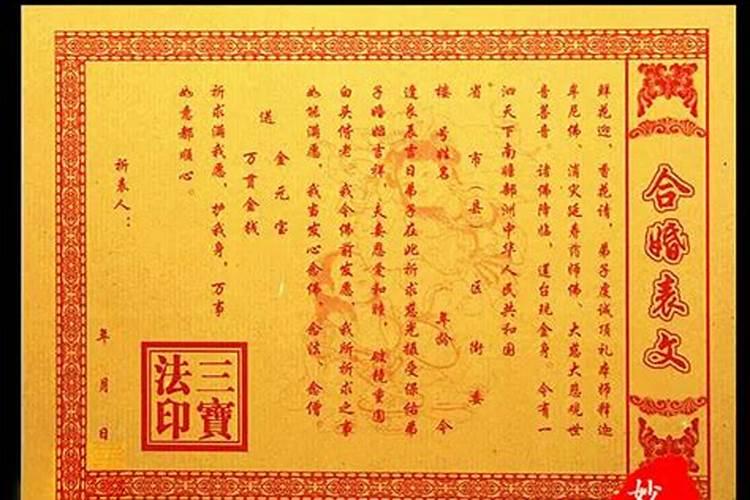 合婚表文
鲜花迎，香花请，弟子虔诚顶礼本师释迦
牟尼佛、消灾延寿药师佛、大慈大悲观世
音菩音。诸佛降临，道台现金身。今有一
泗天下南瞻部洲中华人民共和国
省 市（县 区 街 委
楼 号姓名 年龄 今
逢良辰吉日弟子在此祈求慈光摄受保佑弟
子婚姻吉祥，夫妻恩爱和睦，破镜重圆
白头偕老。我今佛前发愿，我所祈求之事
如能满愿，我当发心念佛、念法、念僧。
送 金元宝
万贯金钱
祈求满我愿，护我身，万事
如意都顺心。
祈表人：
年 月 日
三寳
法印
妙